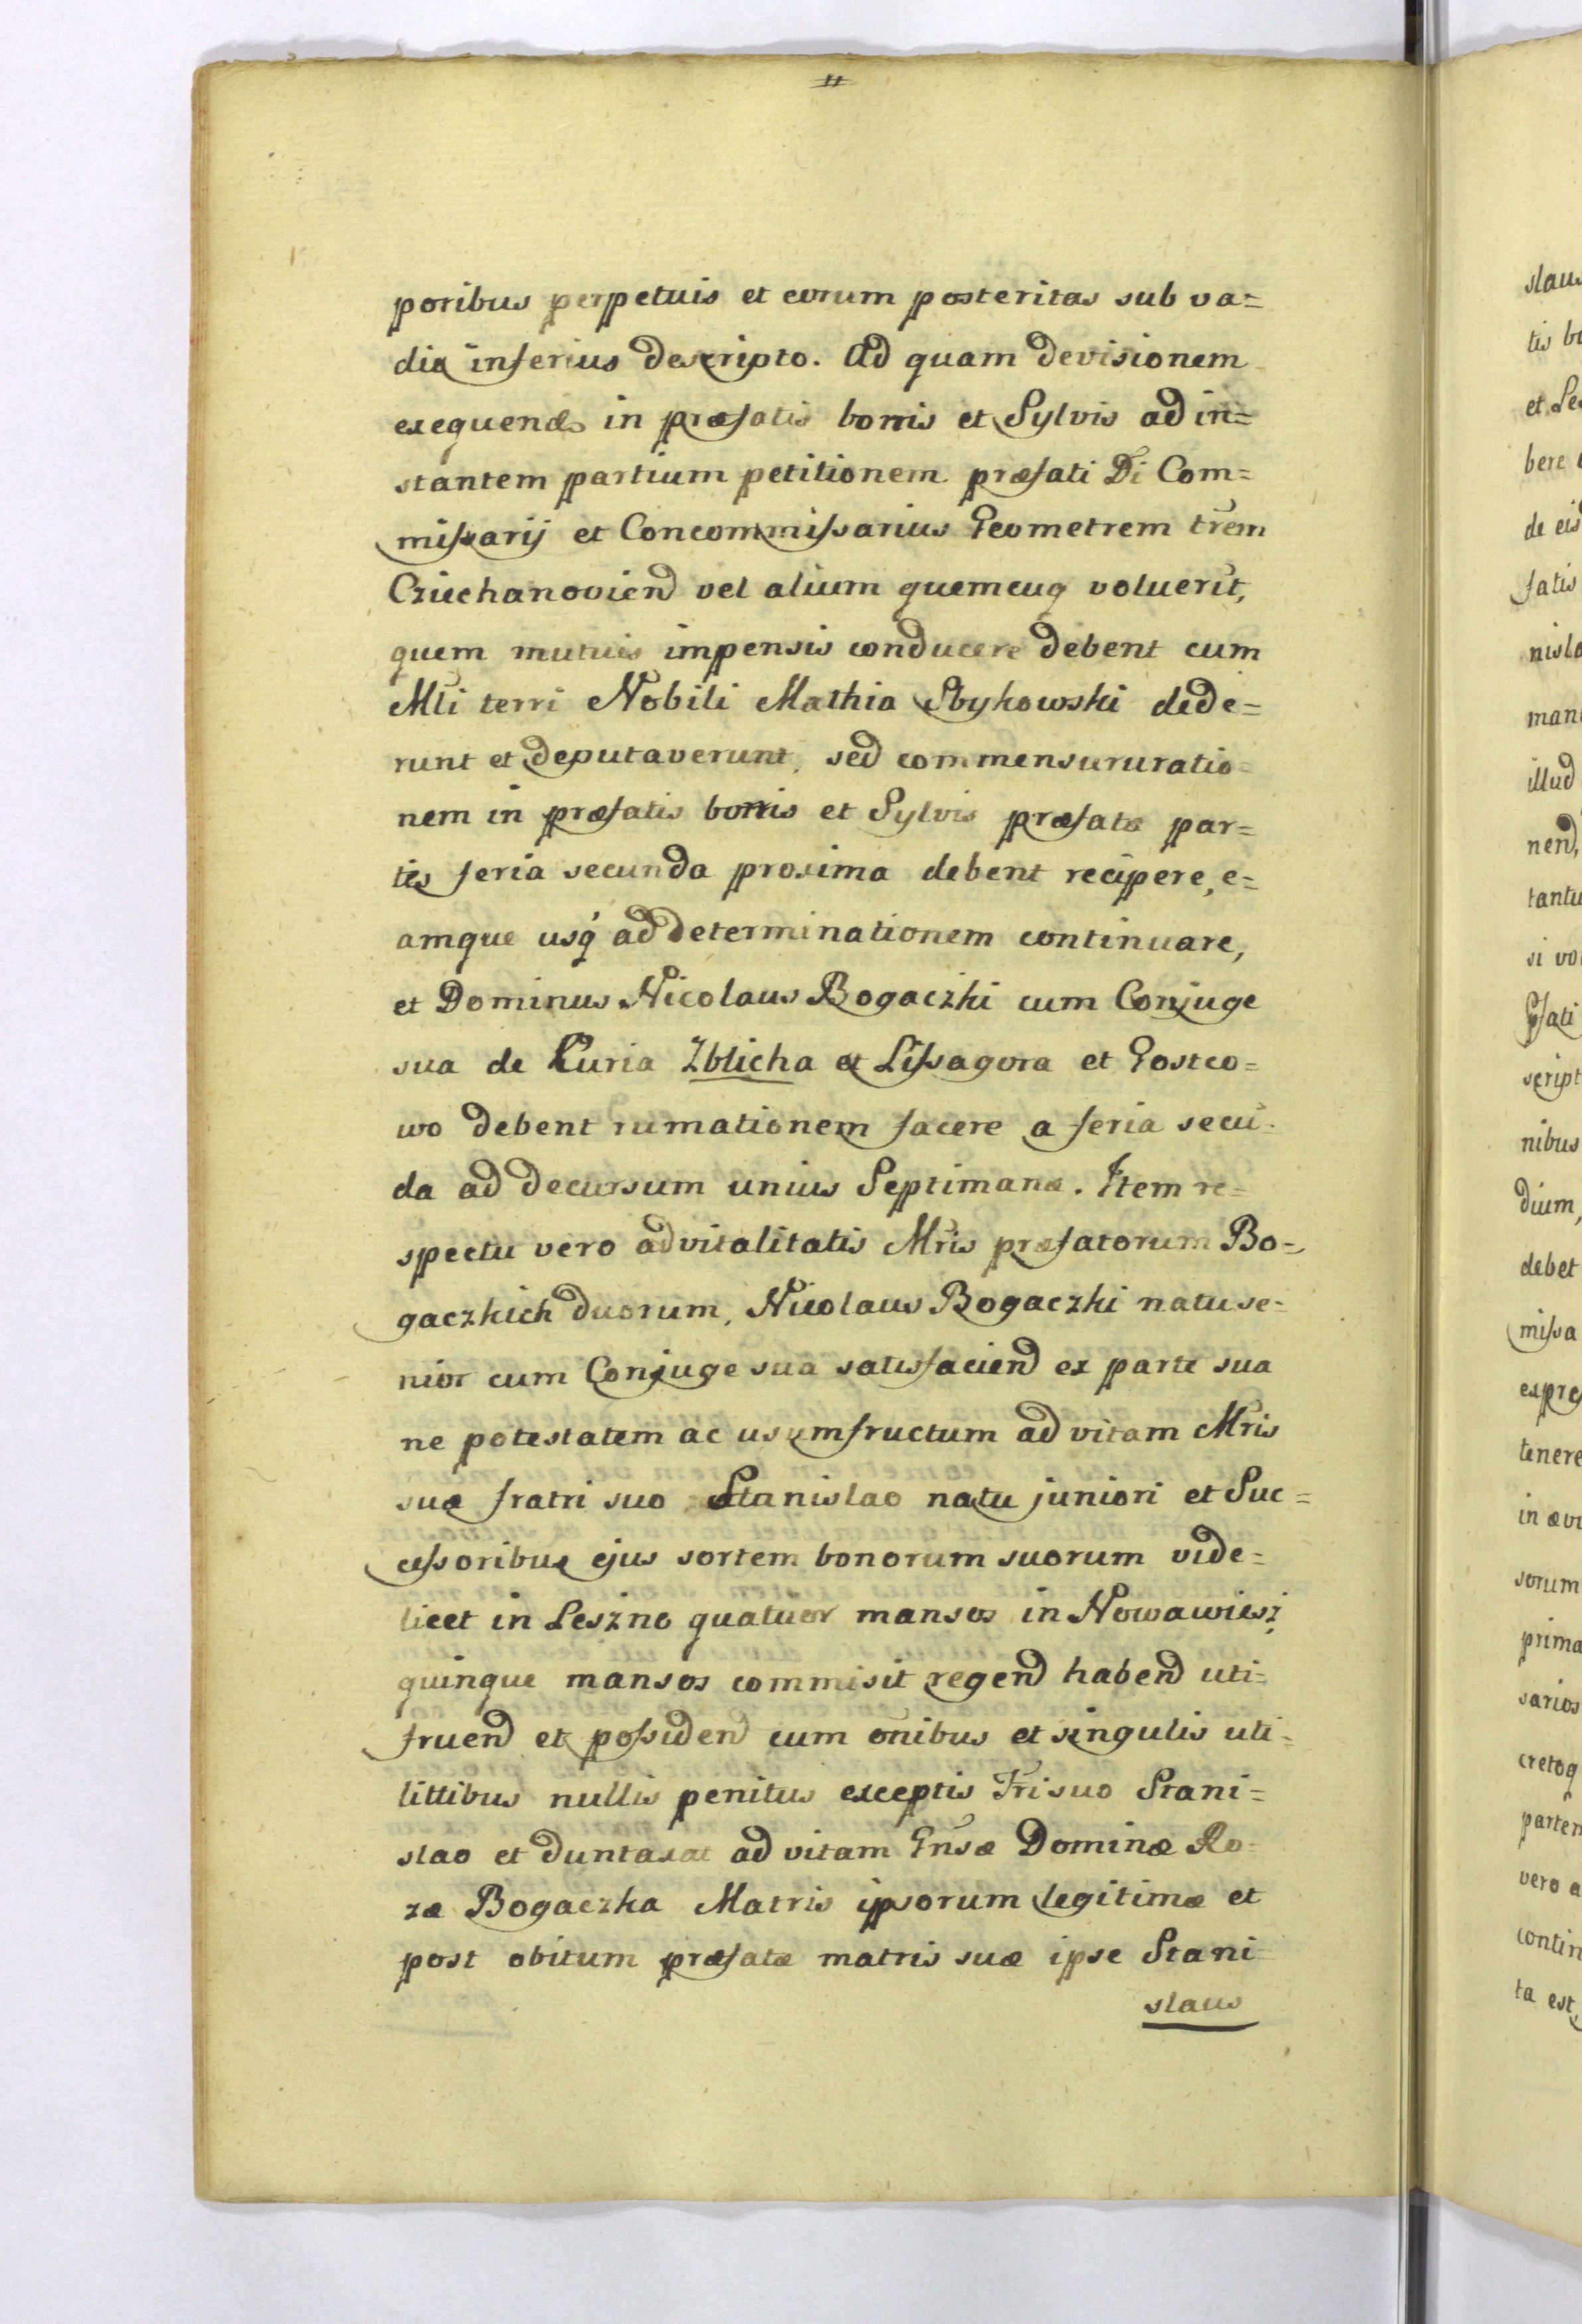 poribus perpetuis et eorum posteritas sub va=
dio inferius descripto. Ad quam devisionem
exequendã in præfatis bonis et Sylvis ad in=
stantem partium petitionem præfati Di Com=
missarij et Concommissarius Geometrem trem
Cziechanoviend vel alium quemcuq voluerit,
quem mutuis impensis conducere debent cum
Mli terri Nobili Mathia Sbykowski dede=
runt et deputaverunt, sed commensururatio=
nem in præfatis bonis et Sylvis præfatæ par=
tes feria secunda proxima debent recipere, e=
amque usq̃ ad determinationem continuare,
et Dominus Nicolaus Bogaczki cum Conjuge
sua de Curia Zblicha et Lissagora et Gostco=
wo debent rumationem facere a feria secũ=
da ad decursum unius Septimanæ. Item re=
spectu vero advitalitatis Mris præfatorum Bo=
gaczkich duorum, Nicolaus Bogaczki natu se=
nior cum Conjuge sua satisfaciend ex parte sua
ne potestatem ac usumfructum ad vitam Mris
suæ fratri suo Stanislao natu juniori et Suc=
cessoribus ejus sortem bonorum suorum vide=
licet in Leszno quatuor mansos in Nowawiesz
quinque mansos commisit regend habend uti=
fruend et possidend cum õnibus et singulis uti=
littibus nullis penitus exceptis Fri suo Stani=
slao et duntaxat ad vitam Gnsæ Dominæ Ro=
zæ Bogaczka Matris ipsorum legitimæ et
post obitum præfatæ matris suæ ipse Stani=
slaus
slaus
tis bo
et Le
bere
de eis
fatis
nisla
man
illud
nend,
tantu
si vo
Pfati
script
nibus
dium,
debet
missa
expre
tenere
in ævi
sorum
prima
sarios
cretoq
partem
vero a
contin
ta est,